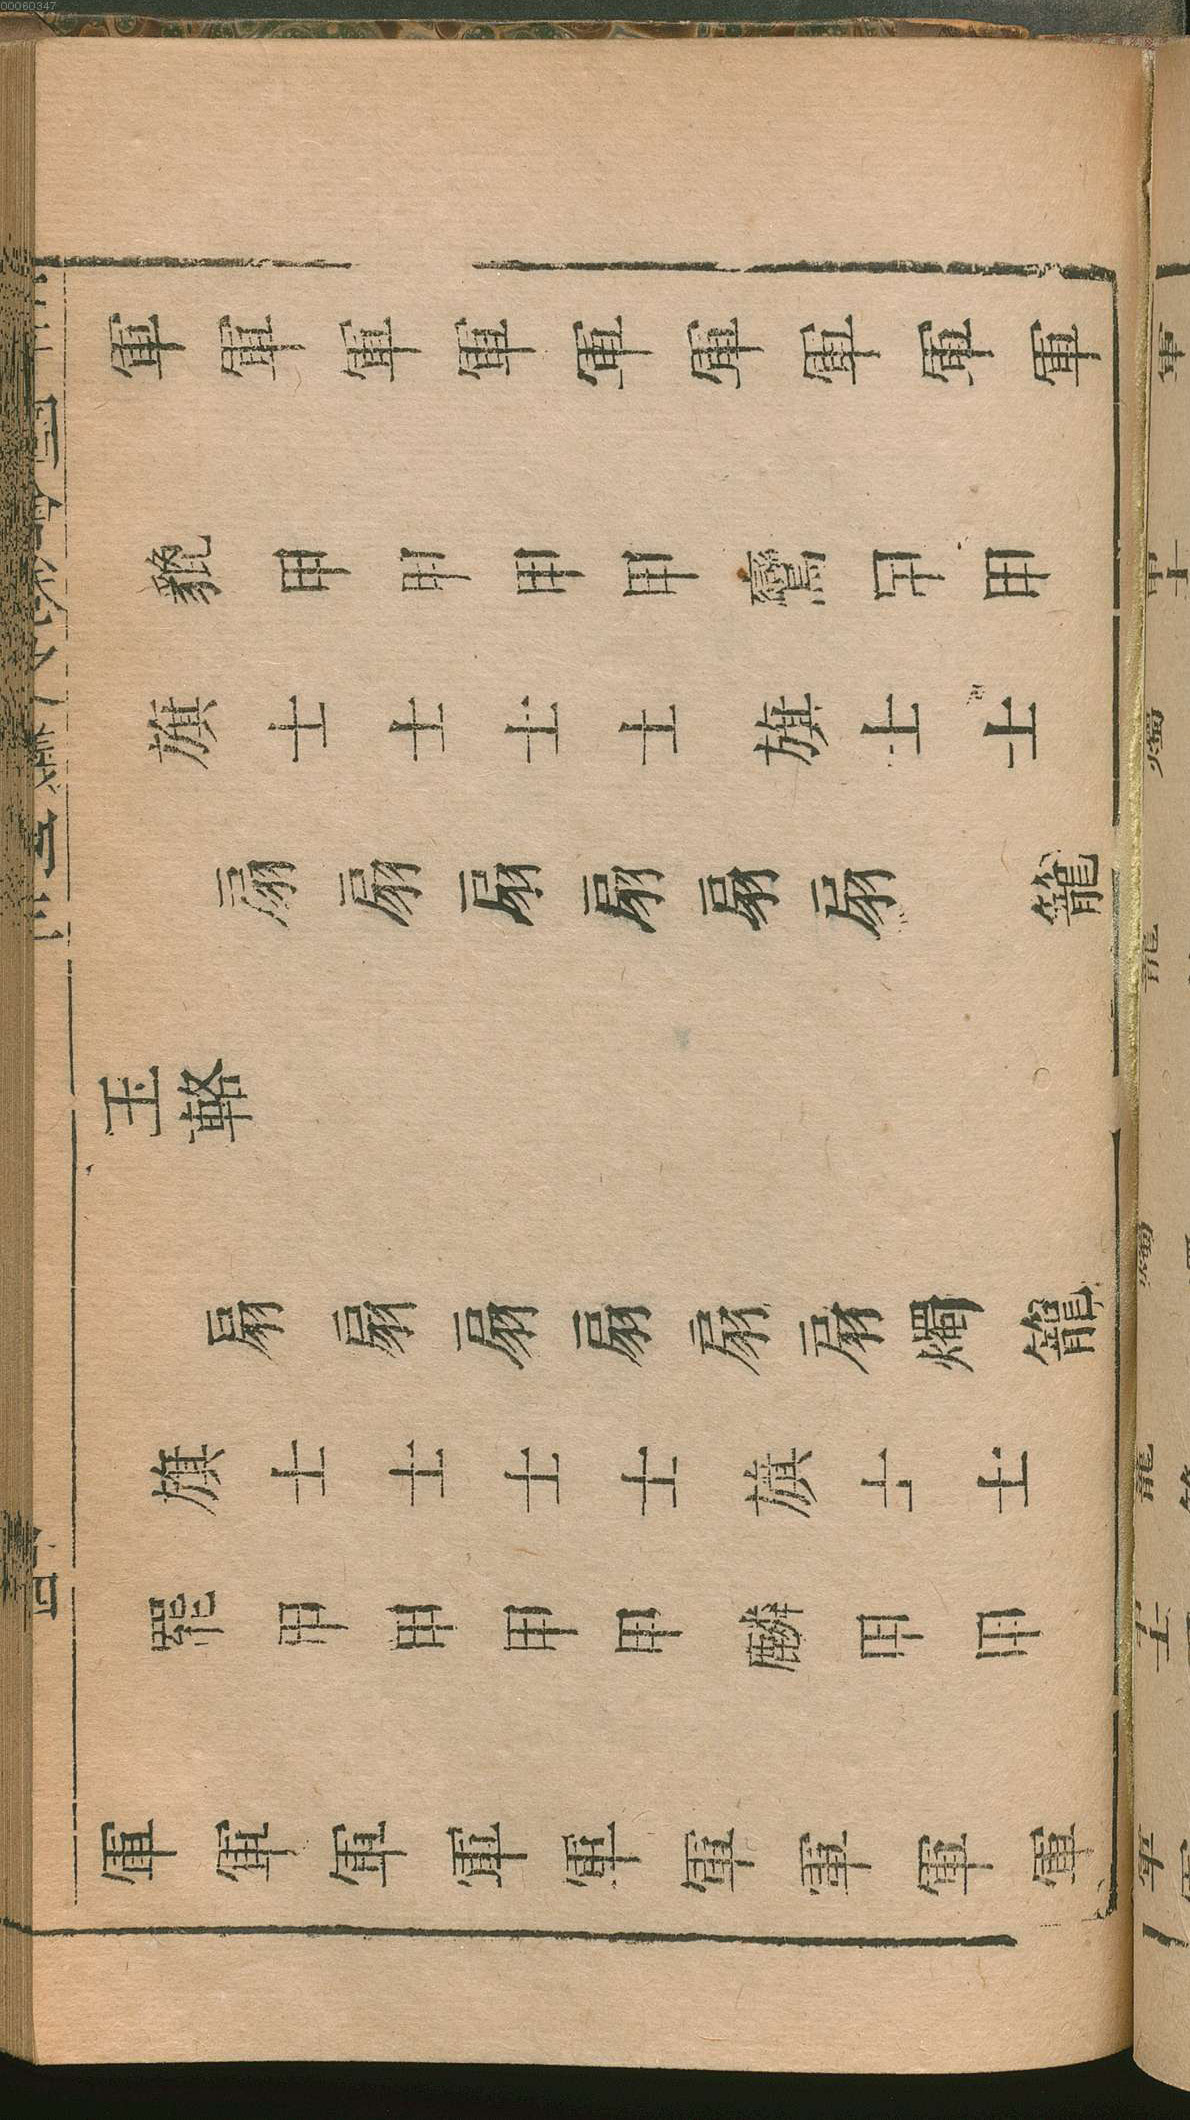 00060347
軍軍軍軍軍軍軍軍軍
貔甲甲甲甲鸞甲甲
旗士士士士旗士士
扇扇扇扇扇扇籠
玉輅
扇扇扇扇扇扇燭籠
旗士士士士旗士士
羆甲甲甲甲麟甲甲
軍軍軍軍軍軍軍軍軍